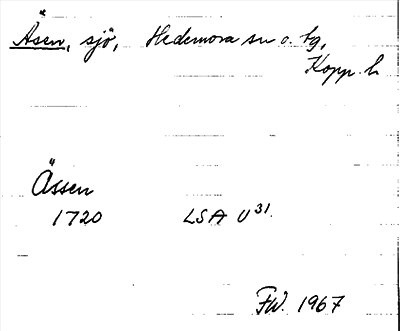 Åsen, sjö, Hedemora sn o. tg,
Kopp. l.
Åssen
1720 LSA U31
FW. 1967